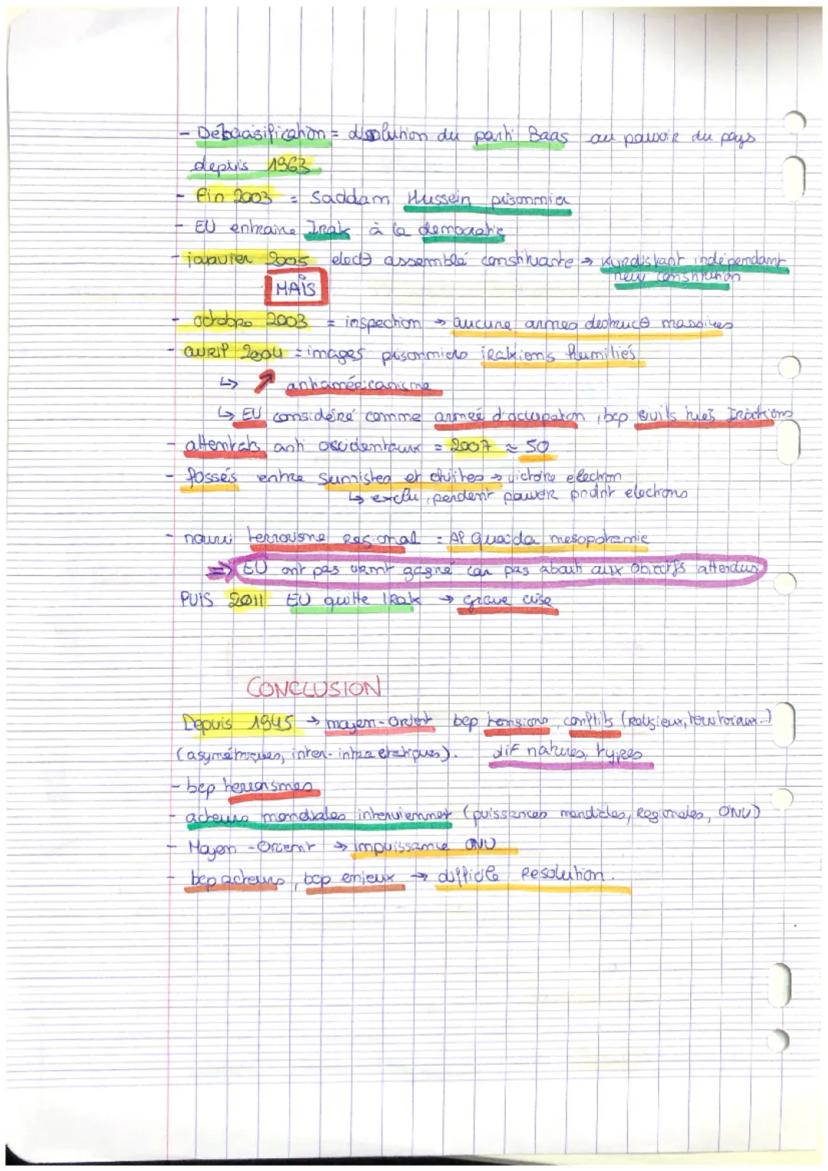 - Debaasification = dissolution du parti Baas au pouvoir du pays
depuis 1963
- fin 2003 = Saddam Hussein prisonnier
- EU entraine Irak à la democratie
- janvier 2005 elect° assemblé constituante → Kurdistant indépendant
new constitution
MAIS
- octobre 2003 = inspection → aucune armes destruct° massives
- avril 2004 = images prisonniers irakiens humiliés
↳ ↗ antiaméricanisme
↳ EU considéré comme armée d'occupation, bcp civils tués Irakiens
- attentats anti occidentaux = 2007 ≈ 50
- fossés entre sunnistes et chiites → victoire election
↳ exclu, perdent pouvoir pndnt elections
- nourri terrorisme regional = Al Quaida mesopotamie
⇒ EU ont pas vrmt gagné car pas about aux objectifs attendus
PUIS 2011 EU quitte Irak → grave crise
CONCLUSION
Depuis 1945 → moyen-orient bcp tensions, conflits (religieux, territoriaux...)
(asymétriques, inter-intra etatiques). dif natures, types
- bcp terrorismes
- acteurs mondiales interviennet (puissances mondiales, regionales, ONU)
- Moyen-Orient → impuissance ONU
- bcp acteurs, bcp enjeux → difficile resolution.